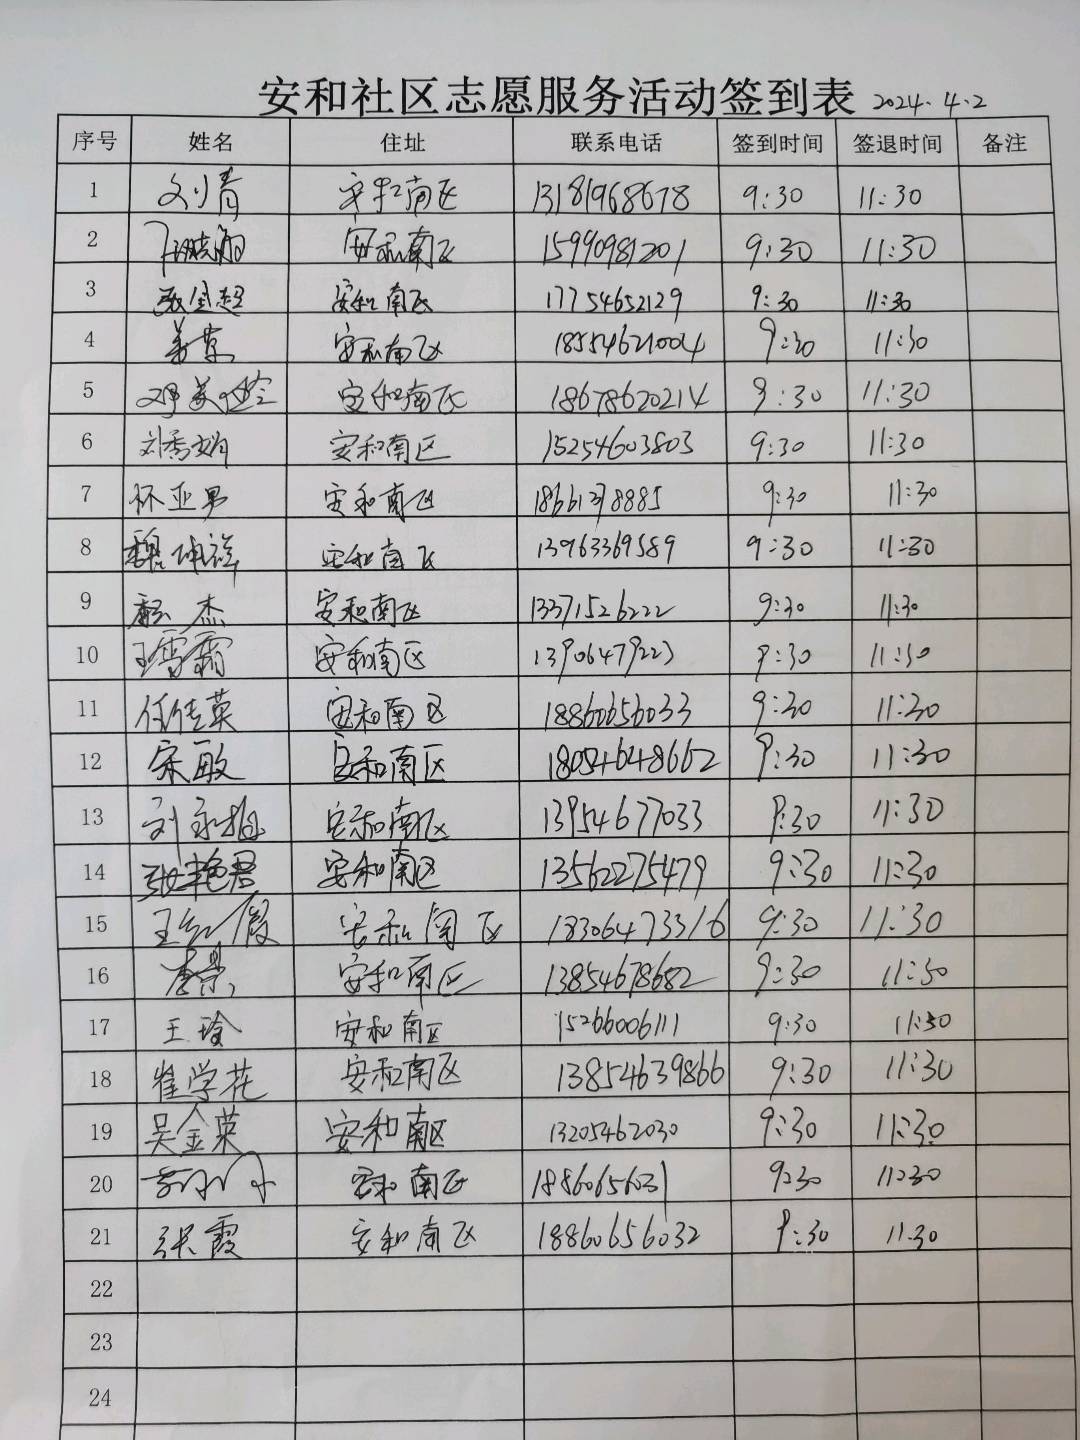 安和社区志愿服务活动签到表 2024.4.2
序号 姓名 住址 联系电话 签到时间 签退时间 备注
1 刘青 安和南区 13181968678 9:30 11:30
2 安和南区 15990981201 9:30 11:30
3 安和南区 17754652129 9:30 11:30
4 姜萍 安和南区 18554621004 9:30 11:30
5 邓美玲 安和南区 18678620214 9:30 11:30
6 刘秀娟 安和南区 15254603803 9:30 11:30
7 怀亚男 安和南区 18661378885 9:30 11:30
8 魏坤祥 安和南区 13963369589 9:30 11:30
9 杰 安和南区 13371526222 9:30 11:30
10 王雪霜 安和南区 13906479223 9:30 11:30
11 任佳英 安和南区 18860656033 9:30 11:30
12 宋敏 安和南区 18054648662 9:30 11:30
13 刘永梅 安和南区 13954677033 9:30 11:30
14 张艳君 安和南区 13562275479 9:30 11:30
15 王红霞 安和南区 18306473316 9:30 11:30
16 李景 安和南区 13854678682 9:30 11:30
17 王玲 安和南区 15266006111 9:30 11:30
18 崔学花 安和南区 13854639866 9:30 11:30
19 吴金荣 安和南区 13205462030 9:30 11:30
20 安和南区 18860656031 9:30 11:30
21 张霞 安和南区 18860656032 9:30 11:30
22
23
24